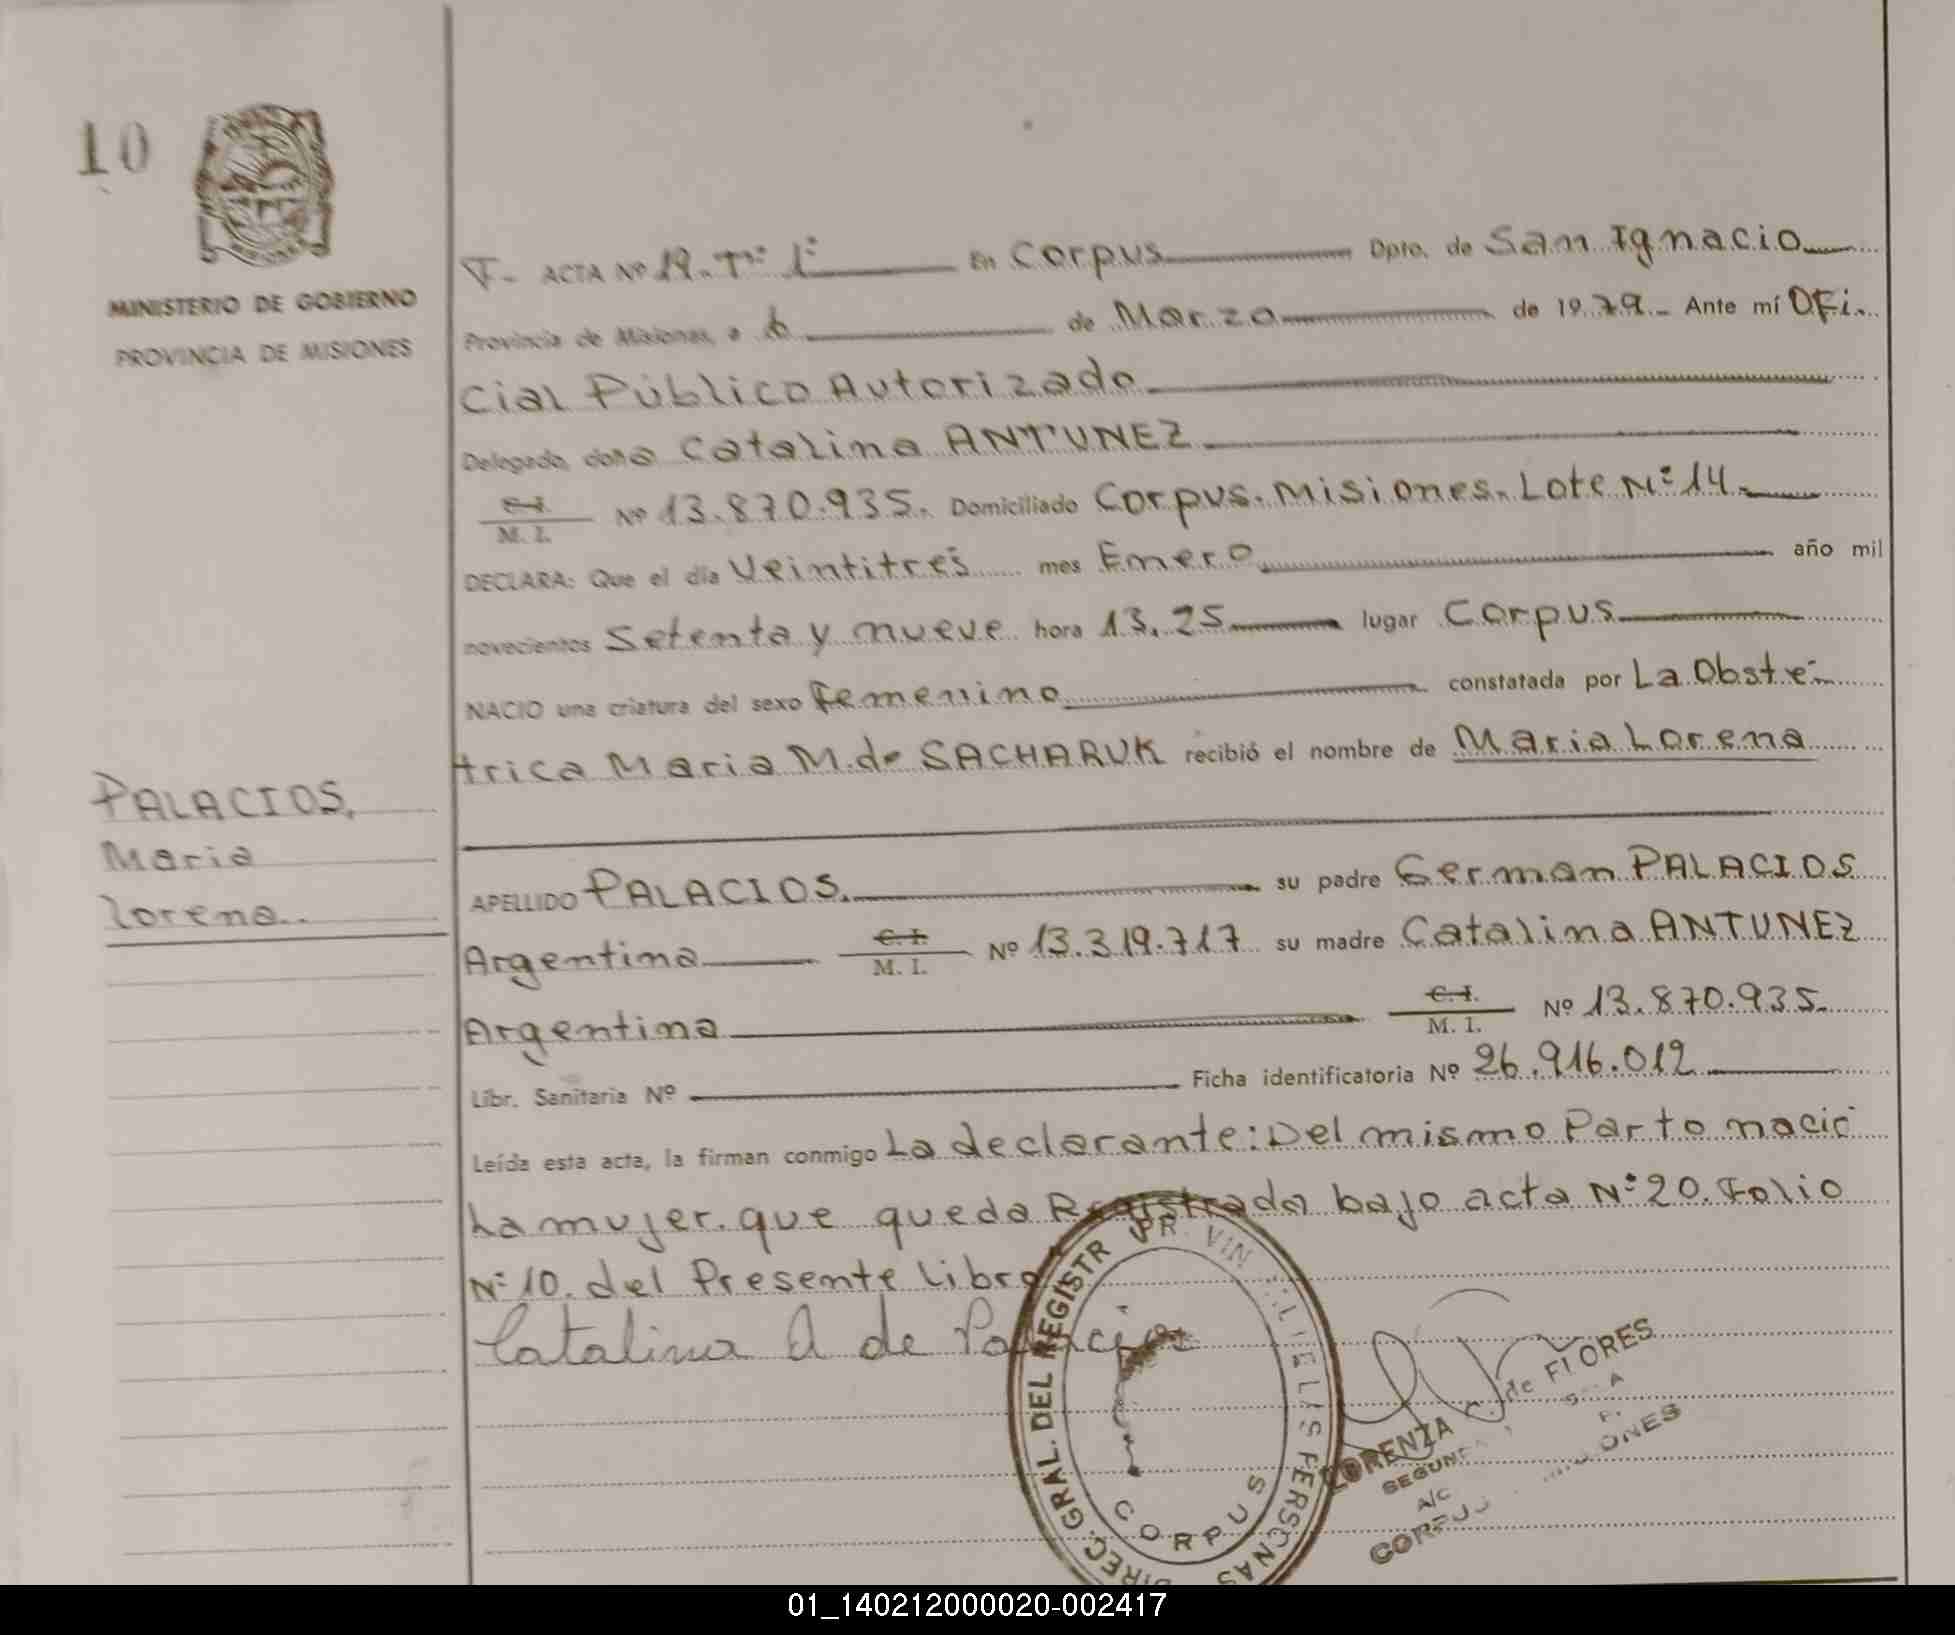 10
MINISTERIO DE GOBIERNO
PROVINCIA DE MISIONES
F- ACTA Nº 19. Tº 1º En Corpus Dpto. de San Ignacio
Provincia de Misiones, a 6 de Marzo de 1979.- Ante mí Ofi-
cial Público Autorizado
Delegado, doña Catalina ANTUNEZ
C.I. M. I. Nº 13.870.935. Domiciliado Corpus. Misiones. Lote Nº 14.
DECLARA: Que el día Veintitrés mes Enero año mil
novecientos Setenta y nueve hora 13.25 lugar Corpus
NACIO una criatura del sexo Femenino constatada por La Obsté-
trica Maria M. de SACHARUK recibió el nombre de Maria Lorena
PALACIOS,
Maria
Lorena.
APELLIDO PALACIOS. su padre German PALACIOS
Argentina C.I. M. I. Nº 13.319.717 su madre Catalina ANTUNEZ
Argentina C.I. M. I. Nº 13.870.935.
Libr. Sanitaria Nº Ficha identificatoria Nº 26.916.012
Leída esta acta, la firman conmigo La declarante: Del mismo Parto nació
La mujer. que queda Registrada bajo acta Nº 20. Folio
Nº 10. del Presente Libro
Catalina A de Palacios
DIREC. GRAL. DEL REGISTR
CORPUS
LORENZA de FLORES
A/C
01_140212000020-002417